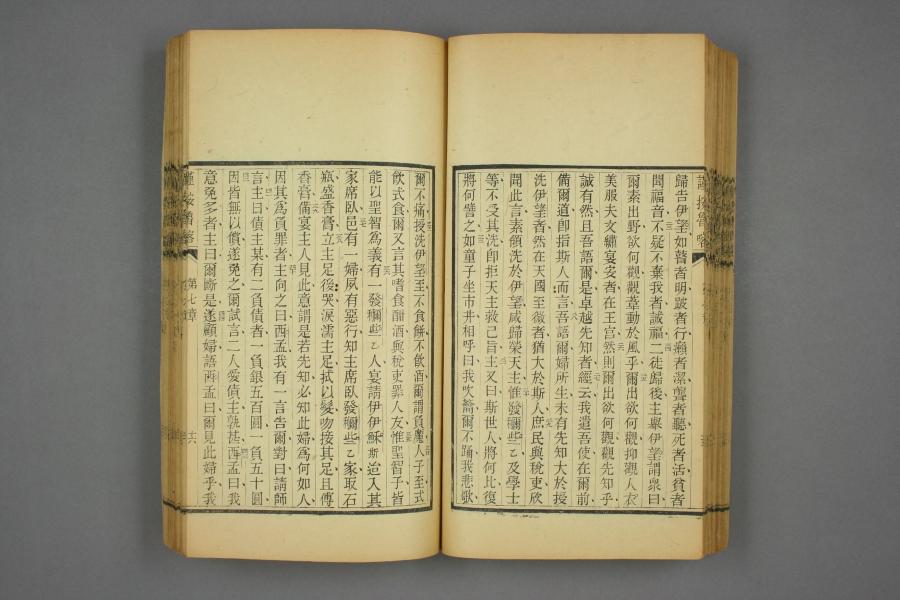 歸告伊望如瞽者明跛者行癩者潔聾者聽死者活貧者
聞福音不疑不棄我者誠福二徒歸後主舉伊望謂衆曰
爾素出野欲何觀觀葦動於風乎爾出欲何觀抑觀人衣
美服夫文繡宴安者在王宮然則爾出欲何觀觀先知乎
誠有然且吾語爾是卓越先知者經云我遣吾使在爾前
備爾道卽指斯人而言吾語爾婦所生未有先知大於授
洗伊望者然在天國至微者猶大於斯人庶民與稅吏欣
聞此言素領洗於伊望咸歸榮天主惟發穪些乙及學士
等不受其洗卽拒天主救己旨主又曰斯世人將何比復
將何譬之如童子坐市井相呼曰我吹籥爾不踊我悲歌
爾不痛授洗伊望至不食餅不飲酒爾謂負魔人子至式
飲式食爾又言其嗜食酣酒與稅吏罪人友惟聖智子皆
能以聖智爲義有一發穪些乙人宴請伊伊穌斯造入其
家席臥邑有一婦夙有惡行知主席臥發穪些乙家取石
瓶盛香膏立主足後哭淚濡主足拭以髮吻接其足且傅
香膏備宴主人見此意謂是若先知必知此婦爲何如人
因其爲負罪者主向之曰西孟我有一言告爾對曰請師
言主曰債主某有二負債者一負銀五百圓一負五十圓
因皆無以償遂免之爾試言二人愛債主孰甚西孟曰我
意免多者主曰爾斷是遂顧婦語西孟曰爾見此婦乎我
第七章